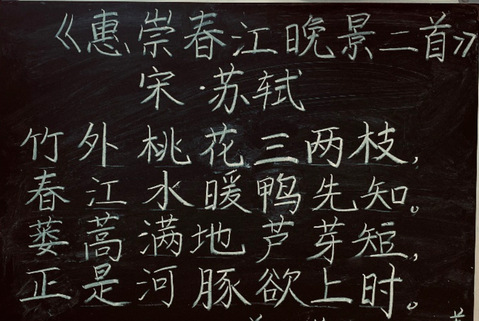 《惠崇春江晚景二首》
宋·苏轼
竹外桃花三两枝,
春江水暖鸭先知。
蒌蒿满地芦芽短,
正是河豚欲上时。